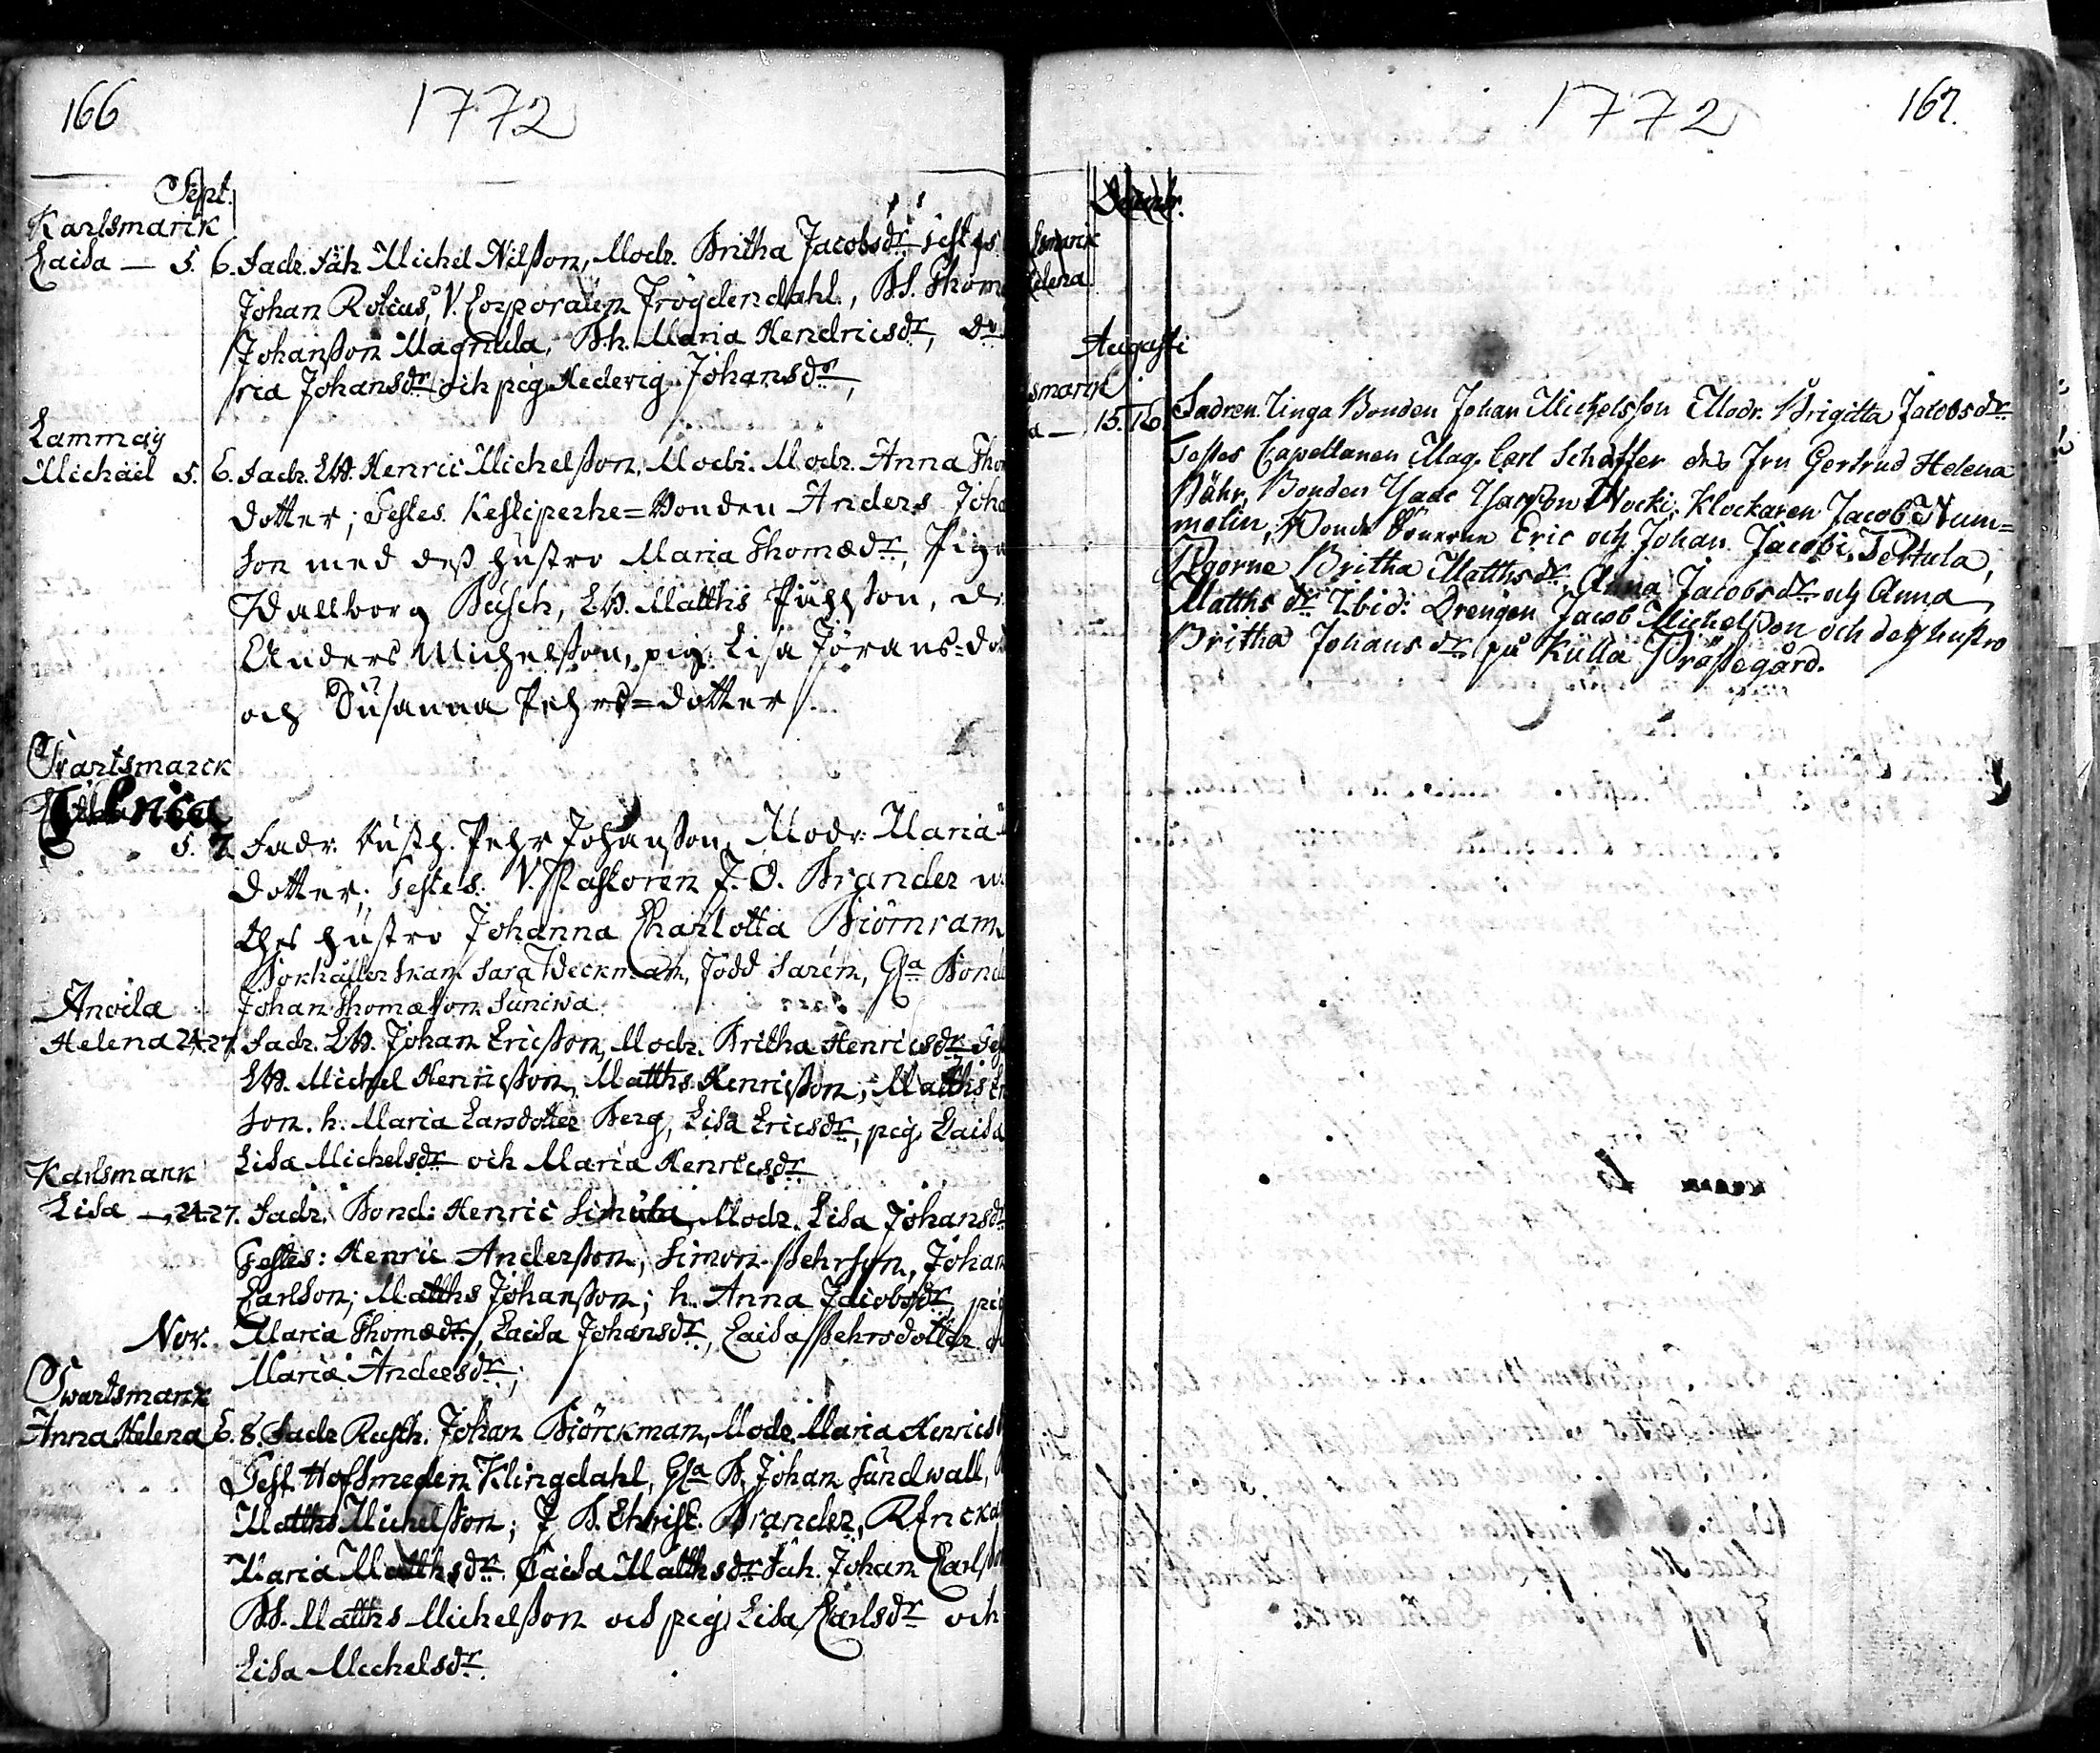 166
1772
Sept.
Karlsmarck
Caisa — 5. 6. Fadr. Michel Nilsson, Modr. Britha Jacobsdr
Johan V. Corporalen BS. Thom
Johansson Magnula, Bh. Maria Hendricsdr,
ria Johansdr och pig. Hedevig Johansdr,
Lammaij
Michaël 5. 6. Fadr. LB. Henric Michelsson, Modr. Anna Tho
dotter; Testes. Keskiperhe=Bonden Anders Joh
son med dess hustro Maria Thomædr, Piga
Wallborg Busch, LB. Matths son, d
Anders Michelsson, pig. Lisa Jörans=do
och Susanna Pehrs=dotter
Svartsmarck
Ulrica
5. 7. Fadr. Rusth. Pehr Johansson, Modr. Maria
dotter; Testes. V. Pastoren J. O. Brander
hustro Johanna Charlotta Biörnram
Bokhållerskan Sara Weckman, Bond
Johan Thomæsson Suniwa
Anoila
Helena 24. 27. Fadr. LB. Johan Ericsson, Modr. Britha Henricsdr
LB. Michel Henricsson, Matths Henricsson, Matths
son. h. Maria Larsdotter Berg, Lisa Ericsdr, pig. Caisa
Lisa Michelsdr och Maria Henricsdr
Karlsmark
Lisa — 24. 27. Fadr. Bond: Henric Simula, Modr. Lisa Johansdr
Testes: Henric Andersson, Simon Pehrsson, Johan
Carlson; Matths Johansson; h. Anna Jacobsdr, pig
Nov. Maria Thomædr, Caisa Johansdr, Caisa Pehrsdotter
Maria Andersdr;
Swartsmark
Anna Helena 6. 8. Fadr. Rusth. Johan Biörckman, Modr. Maria Henrics
Test. Hofsmeden Klingdahl, Gla B. Johan Sundwall,
Matths Michelsson; J. B. Christ. Brander,
Maria Matthsdr, Caisa Matthsdr Johan Carls
BS. Matths Michelsson och pig. Lisa Carlsdr och
Lisa Michelsdr
1772
167.
smarck
elena
Augusti
smarck
a — 15. 16. Fadren Unga Bonden Johan Michelsson Modr. Brigitta Jacobsdr
Testes Capellanen Mag. Carl Schæffer des Fru Gertrud Helena
Bähr, Bonden Isaac Isacsson Nocki, Klockaren Jacob Num=
melin, Bonde Sönerne Eric och Johan Jacobi Tettula,
Pigorne Britha Matthsdr, Anna Jacobsdr och Anna
Matthsdr Ibid: Drengen Jacob Michelsson och dess hustro
Britha Johansdr på Kulla Prästegård.